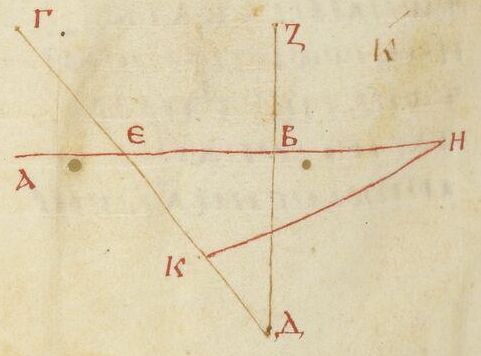 Γ
Ζ
Κ
Є
Β
Η
Α
Κ
Δ